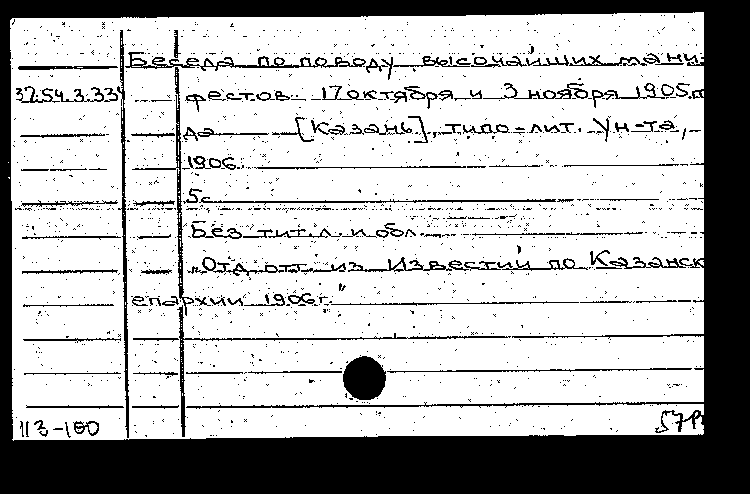 Беседа по поводу высочайших мани-
37.54.3.334 фестов 17 октября и 3 ноября 1905 го
да [Казань], типо-лит. Ун-та,
1906.
5с
Без тит.л. и обл.
„Отд. отт. из Известий по Казанск
епархии 1906г."
113-100